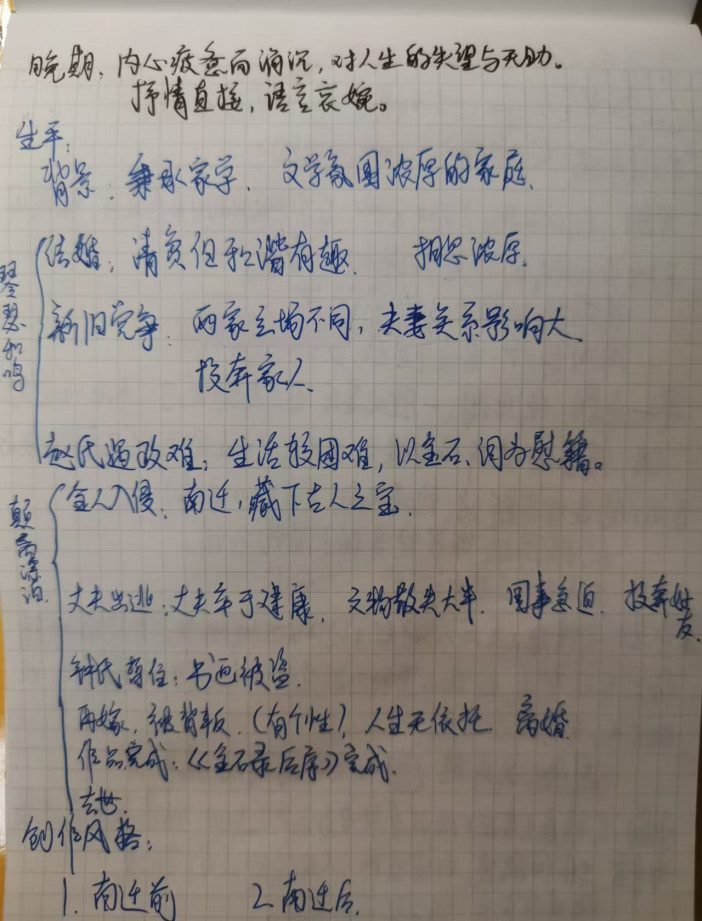 晚期，内心疲惫而消沉，对人生的失望与无助。
抒情直接，语言哀婉。
生平：
背景：秉承家学，文学氛围浓厚的家庭。
琴瑟和鸣
结婚：清贫但和谐有趣。 相思浓厚。
新旧党争：两家立场不同，夫妻关系影响大。
投奔家人。
赵氏遇政难：生活较困难，以金石、词为慰籍。
颠沛漂泊
金人入侵：南迁，藏下古人之宝。
丈夫出逃：丈夫卒于建康，文物散失大半，国事急迫，投奔姓友。
钟氏暂住：书画被盗。
再嫁，被背叛。（有个性），人生无依托 离婚
作品完成：《《金石录后序》》完成。
去世。
创作风格：
1. 南迁前 2. 南迁后。